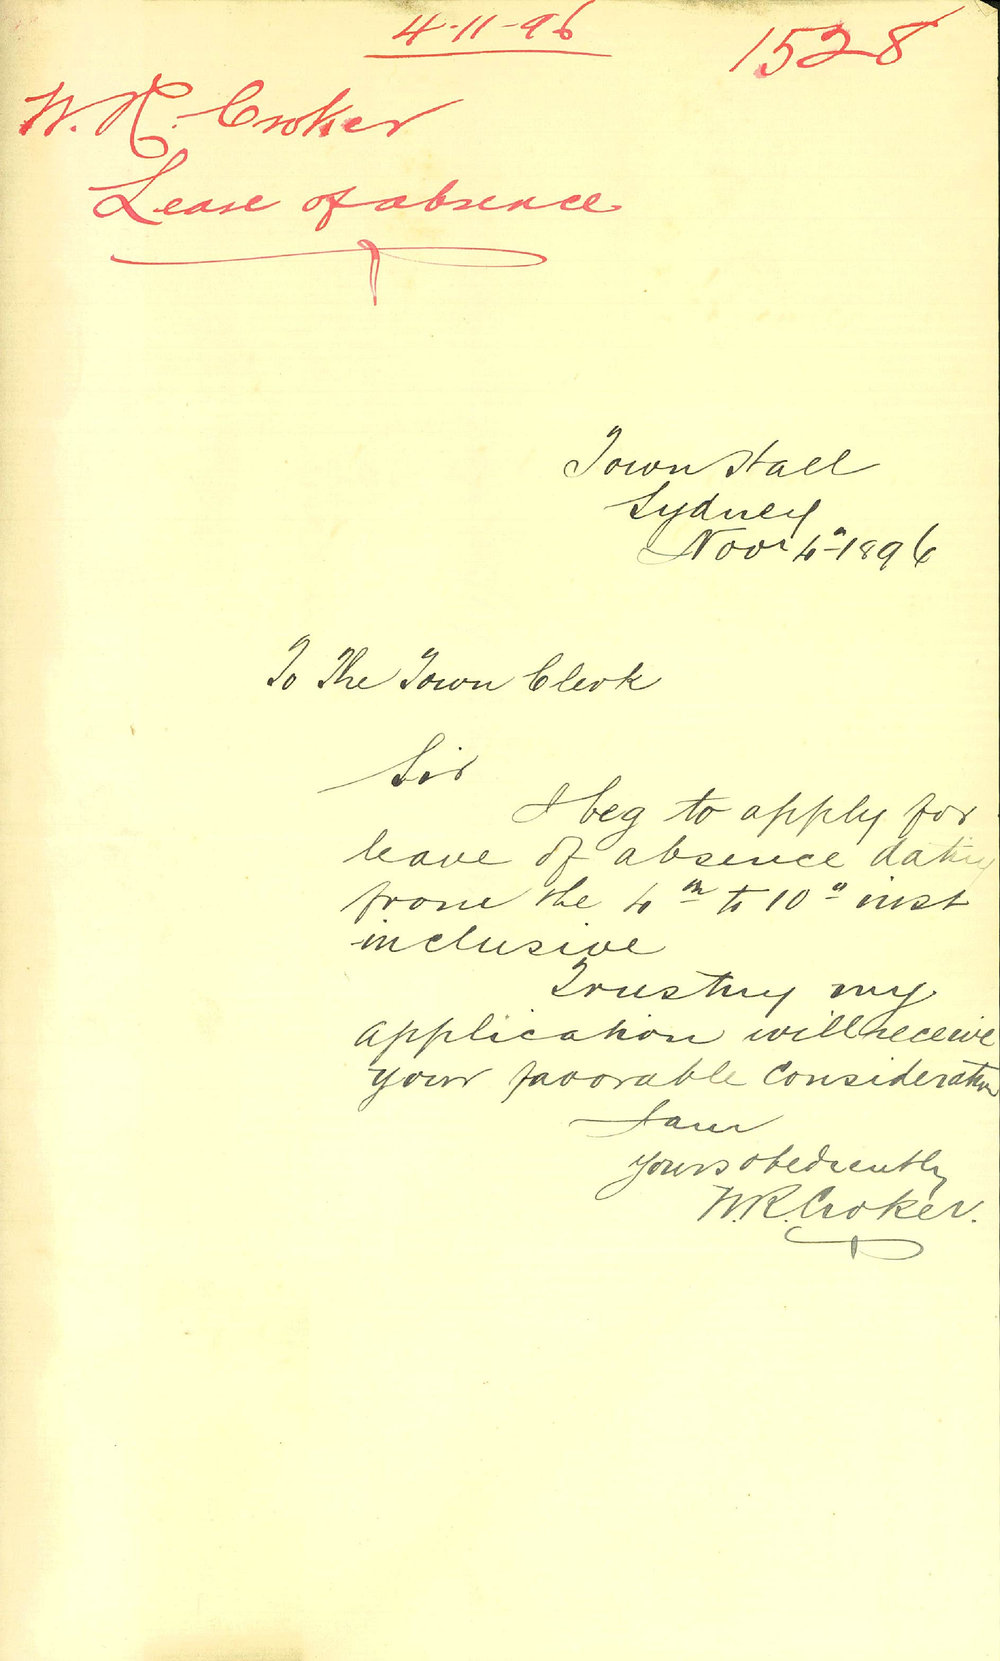 4-11-96
1528
W. R. Croker
Leave of absence
Town Hall
Sydney
Novr 4th 1896
To The Town Clerk
Sir
I beg to apply for
leave of absence dating
from the 4th to 10" inst
inclusive
Trusting my
application will receive
your favorable consideration
I am
yours obediently
W.R. Croker.